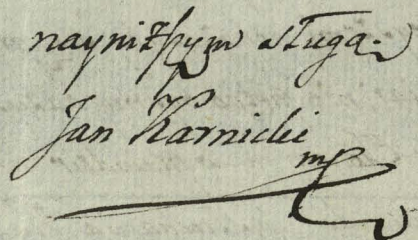 nayniższym sługą
Jan Karnicki
mp